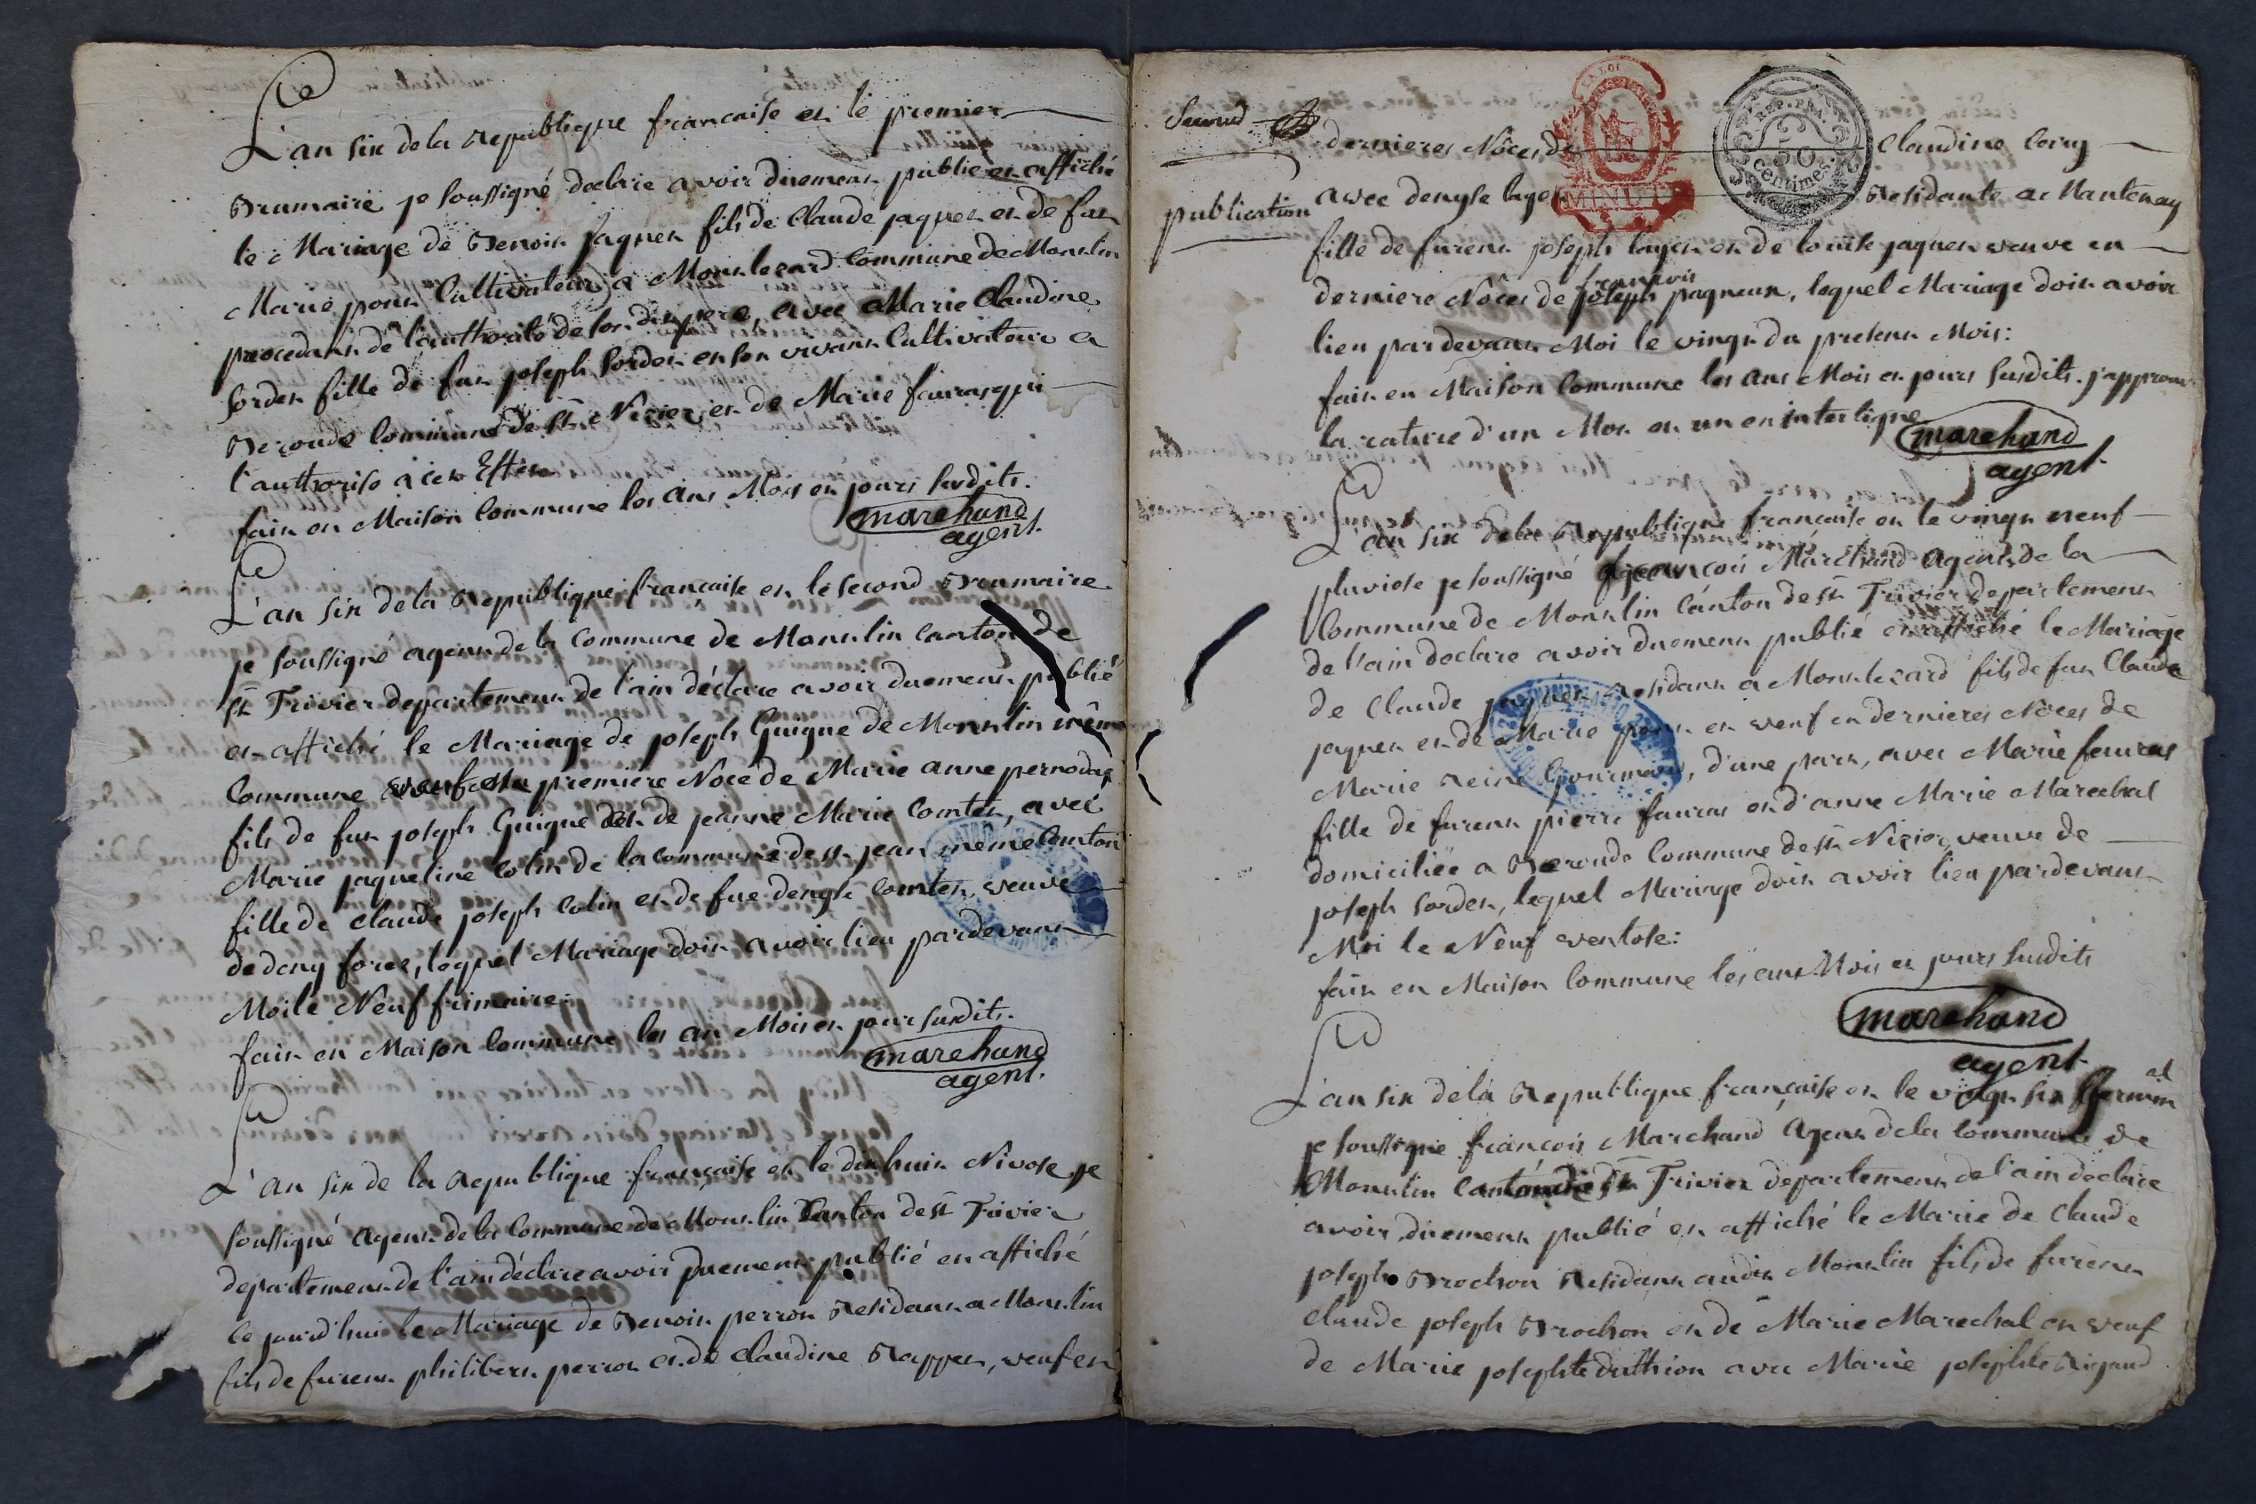 L'an six de la Republique française et le premier
Brumaire je soussigné declare avoir duement publié et affiché
le Mariage de Benoit jaquet fils de Claude jaquet et de fut
Marie pont Cultivateur a Montlezard Commune de Montlin
procedant de l'authorité de son dit pere, avec Marie Claudine
Sordet fille de fut joseph Sordet en son vivant Cultivateur a
Beronde Commune de St Nizier, et de Marie fauras qui
l'authorise à cet Effet.
fait en Maison Commune les ans Mois et jours susdits.
marchand
agent.
L'an six de la Republique française et le second Brumaire
je soussigné agent de la Commune de Montlin Canton de
St Trivier departement de l'ain déclare avoir duement publié
et affiché le Mariage de joseph Guigue de Montlin même
Commune veuf en premiere Noce de Marie anne pernodat
fils de fut joseph Guigue et de jeanne Marie Comtet, avec
Marie jaqueline Colin de la commune de St jean même Canton
fille de Claude joseph Colin et de fue denyse Comtet, veuve
de deny foret, lequel Mariage doit avoir lieu pardevant
Moi le Neuf frimaire:
fait en Maison Commune les an Mois et jour susdits.
marchand
agent.
L'an six de la Republique française et le dix huit Nivose je
soussigné Agent de la Commune de Montlin Canton de St Trivier
departement de l'ain déclare avoir duement publié et affiché
ce jourd'hui le Mariage de Benoit perron Residant a Montlin
fils de furent philibert perron et de Claudine Rappet, veuf en
Second
publication
dernieres Nôces de Claudine
avec denyse Resident a Mantenay
fille de furent joseph et de Louise jaquet veuve en
françois
derniere Nôces de joseph pagneux, lequel Mariage doit avoir
lieu pardevant Moi le vingt du present Mois:
fait en Maison Commune les ans Mois et jours susdits. j'approuve
la rature d'un Mot et un en interligne
marchand
agent.
L'an six de la Republique française et le vingt neuf
pluviose je soussigné françois Marchand Agent de la
Commune de Montlin Canton de St Trivier departement
de l'ain declare avoir duement publié et affiché le Mariage
de Claude jaquet Residant a Montlezard fils de fut Claude
jaquet et de Marie pont et veuf en dernieres Nôces de
Marie Reine d'une part, avec Marie fauras
fille de furent pierre fauras et d'anne Marie Marechal
domiciliée a Beronde Commune de St Nizier, veuve de
joseph Sordet, lequel Mariage doit avoir lieu pardevant
Moi le Neuf ventose:
fait en Maison Commune les ans Mois et jours susdits
marchand
agent.
L'an six de la Republique française et le vingt six Germinal
je soussigné françois Marchand Agent de la Commune de
Montlin Canton de St Trivier departement de l'ain declare
avoir duement publié et affiché le Marie de Claude
joseph Brochon Residant audit Montlin fils de furent
Claude joseph Brochon et de Marie Marechal et veuf
de Marie josephte duthion avec Marie josephte Rigaud
REP. FRA.
50
Centimes
LA LOI